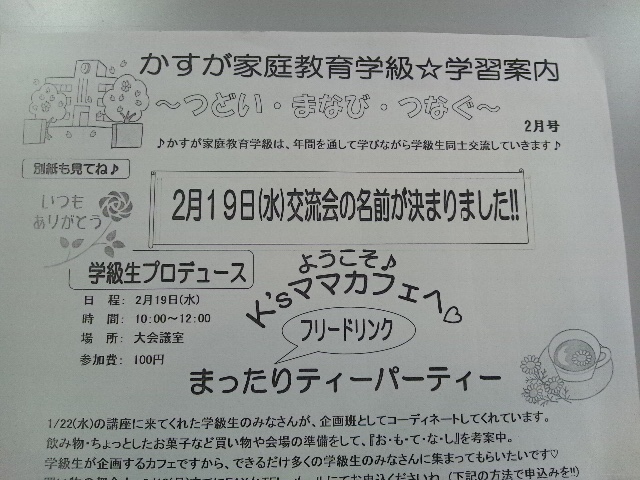 かすが家庭教育学級☆学習案内
～つどい・まなび・つなぐ～
2月号
♪かすが家庭教育学級は、年間を通して学びながら学級生同士交流していきます♪
別紙も見てね♪
いつも
ありがとう
2月19日(水)交流会の名前が決まりました!!
学級生プロデュース
日 程: 2月19日(水)
時 間: 10:00～12:00
場 所: 大会議室
参加費: 100円
ようこそ♪
K'sママカフェへ♡
フリードリンク
まったりティーパーティー
1/22(水)の講座に来てくれた学級生のみなさんが、企画班としてコーディネートしてくれています。
飲み物・ちょっとしたお菓子など買い物や会場の準備をして、『お・も・て・な・し』を考案中。
学級生が企画するカフェですから、できるだけ多くの学級生のみなさんに集まってもらいたいです♡